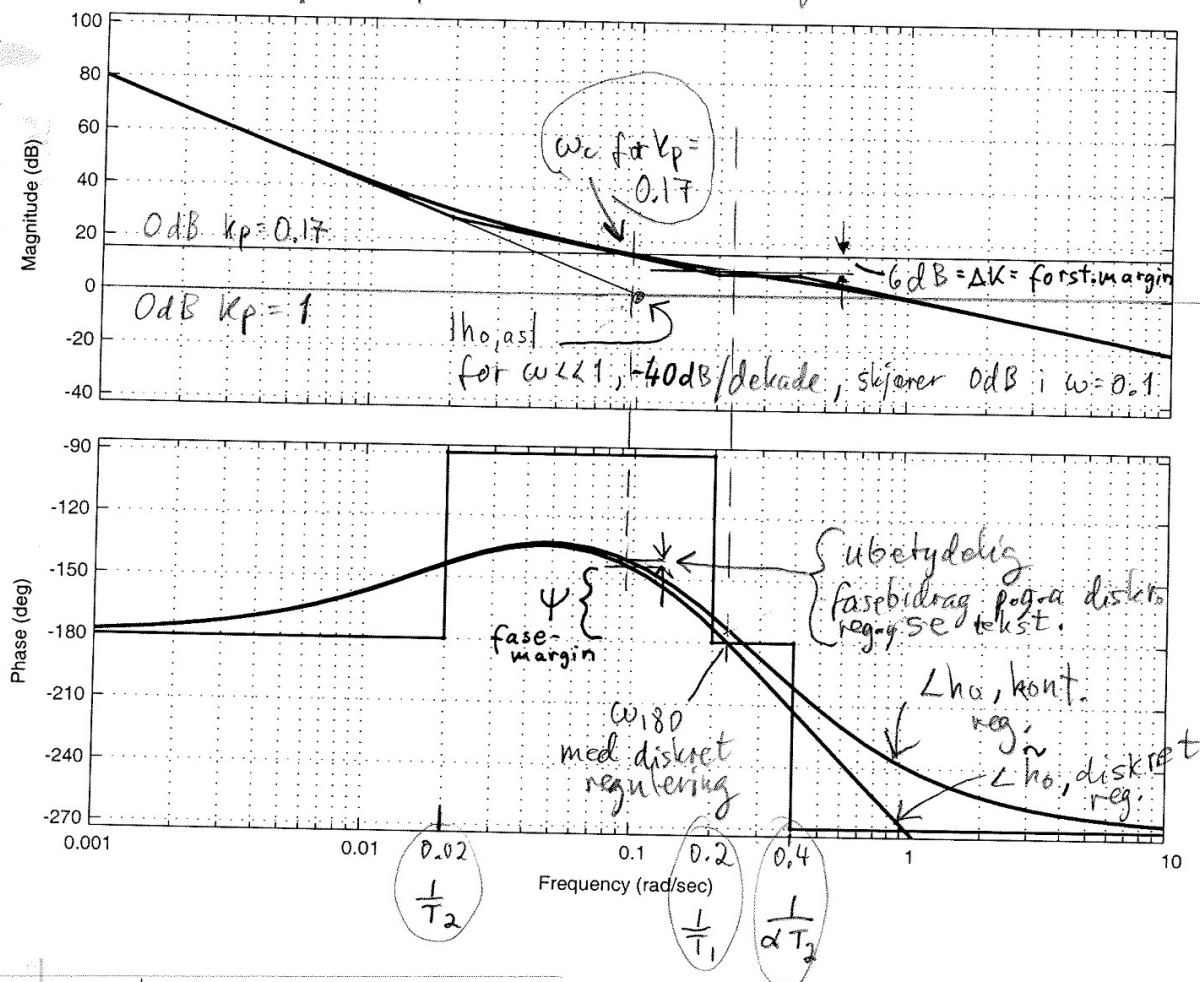 100
80
60
40
20
0
-20
-40
Magnitude (dB)
ωc for Kp =
0.17
0dB Kp = 0.17
0dB Kp = 1
6dB = ΔK = forst.margin
|ho,as|
for ω<<1, -40dB/dekade, skjærer 0dB i ω=0.1
-90
-120
-150
-180
-210
-240
-270
Phase (deg)
ψ
fase-
margin
ubetydelig
fasebidrag p.g.a diskr.
reg., se tekst.
ω180
med diskret
regulering
∠ho, kont.
reg.
∠ho, diskret
reg.
0.001
0.01
0.02
0.1
0.2
0.4
1
10
Frequency (rad/sec)
1/T2
1/T1
1/αT2